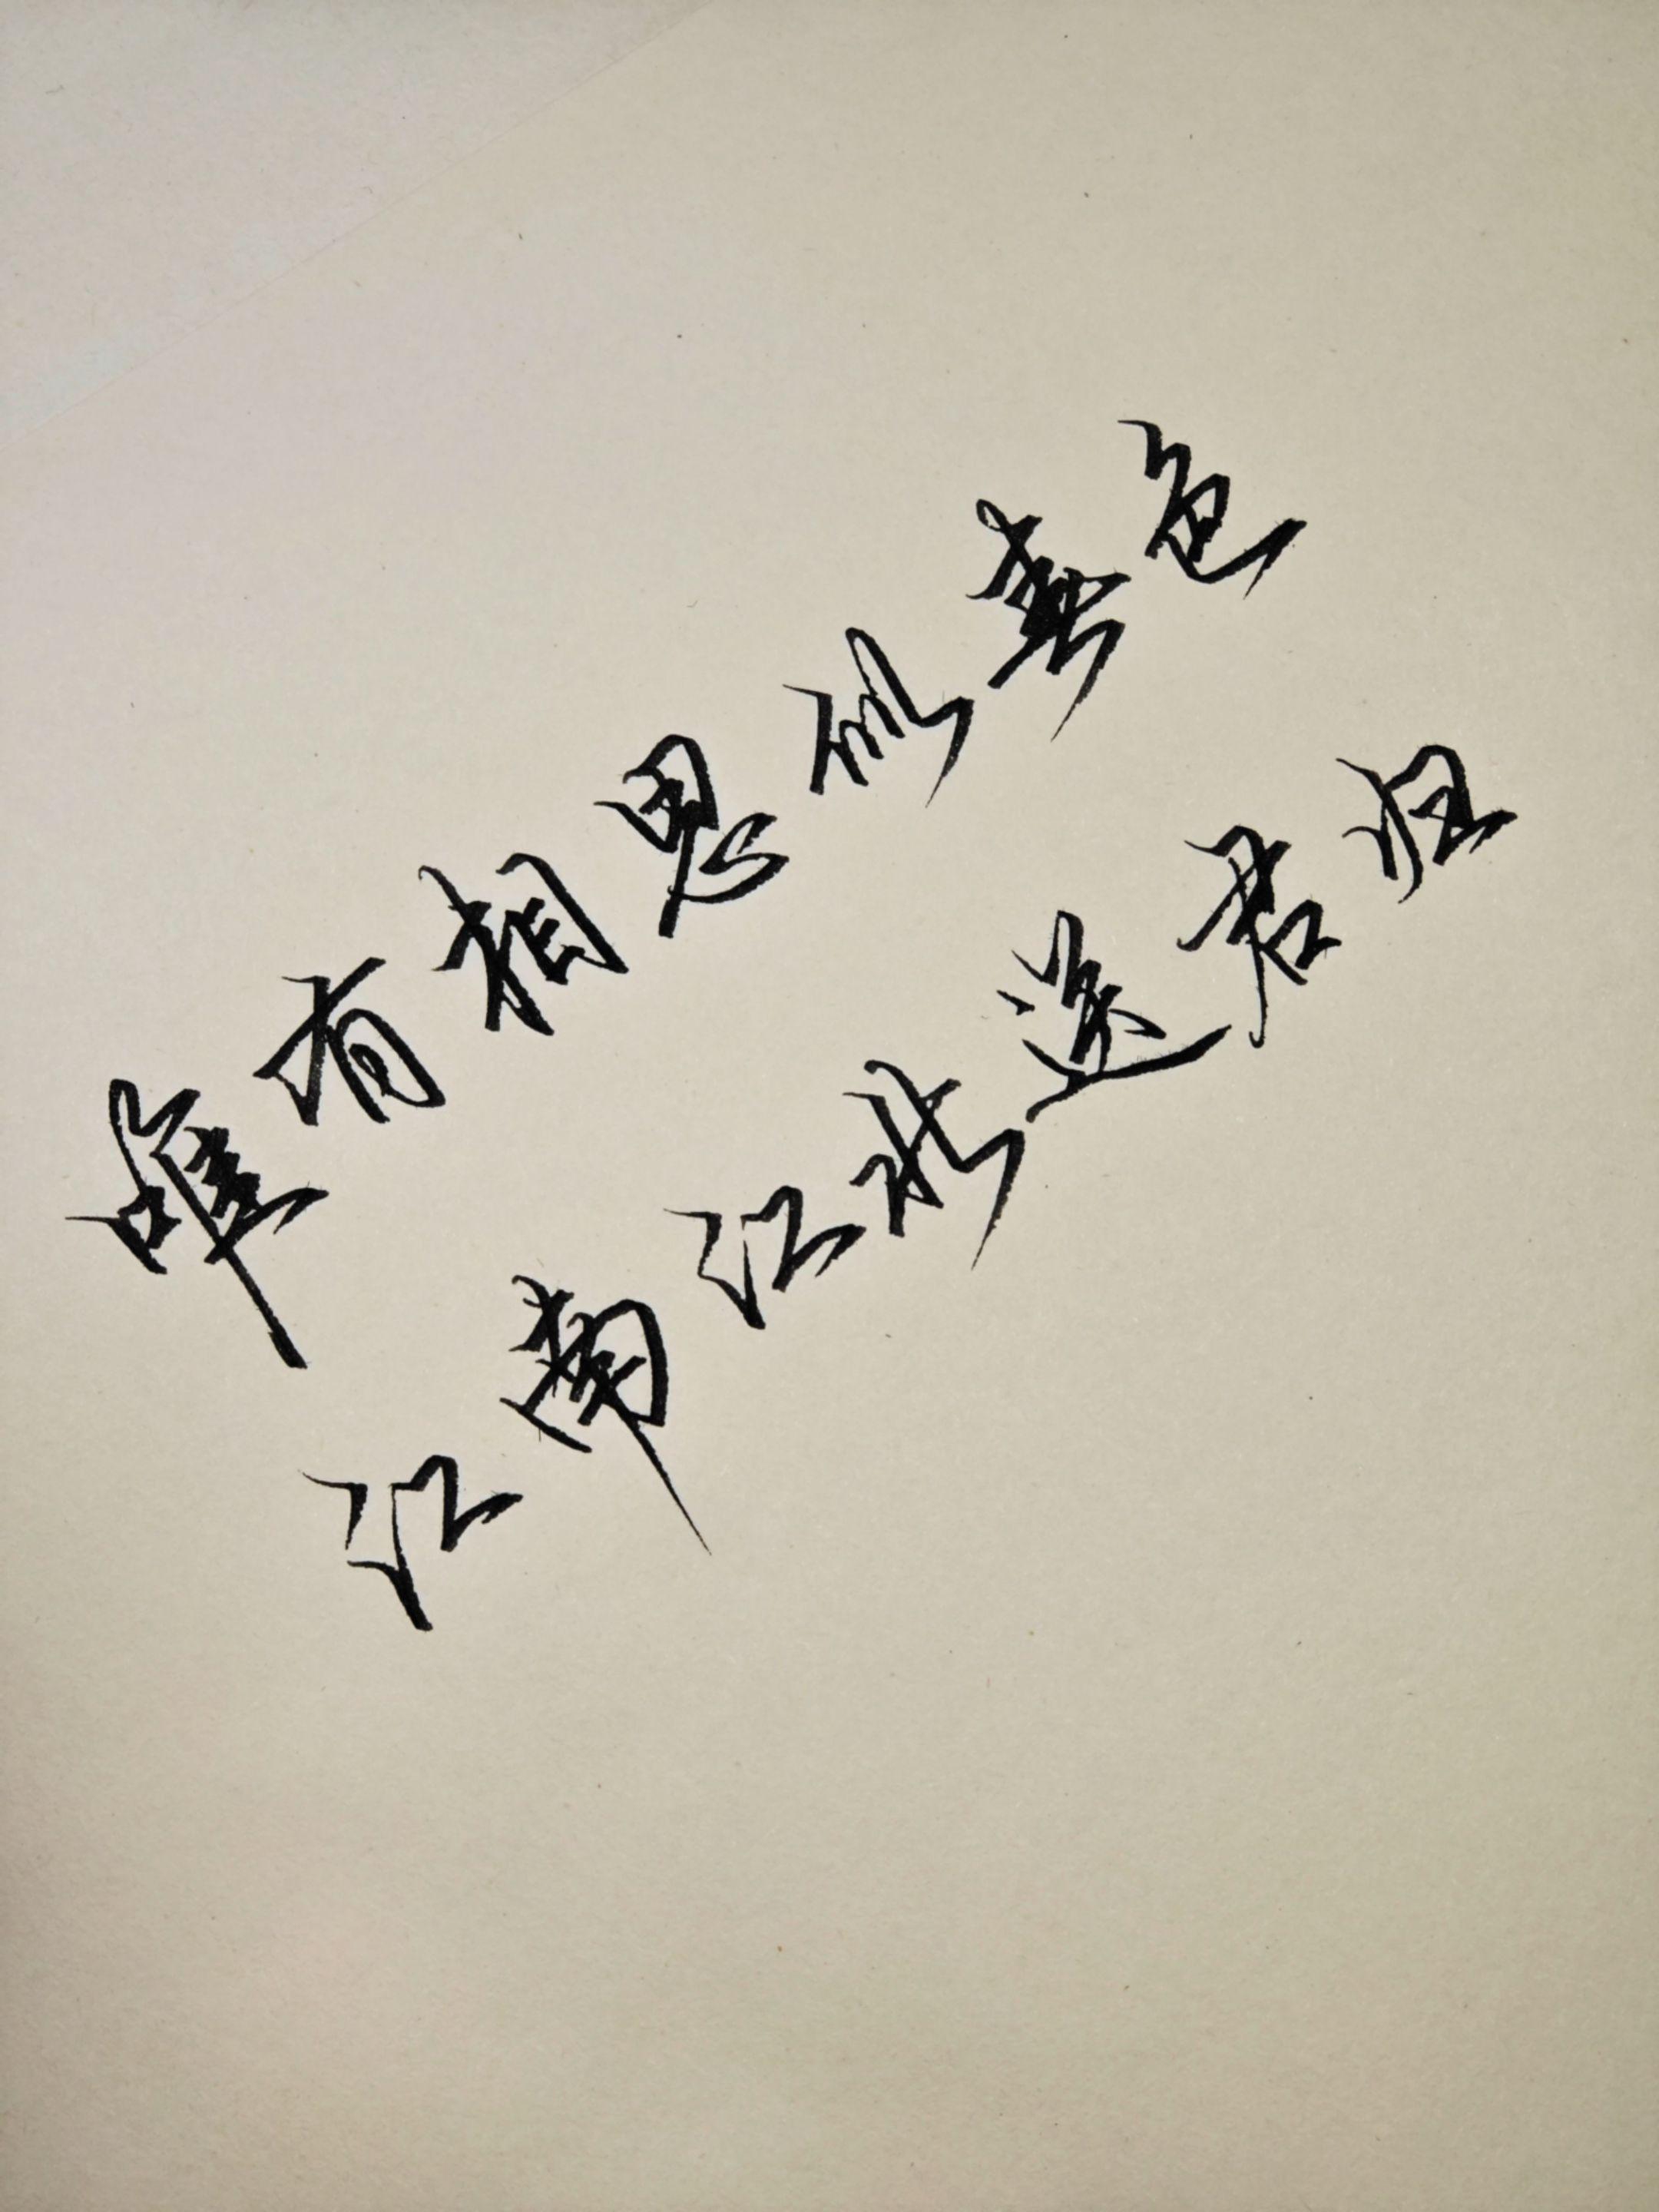 唯有相思似春色
江南江北送君归